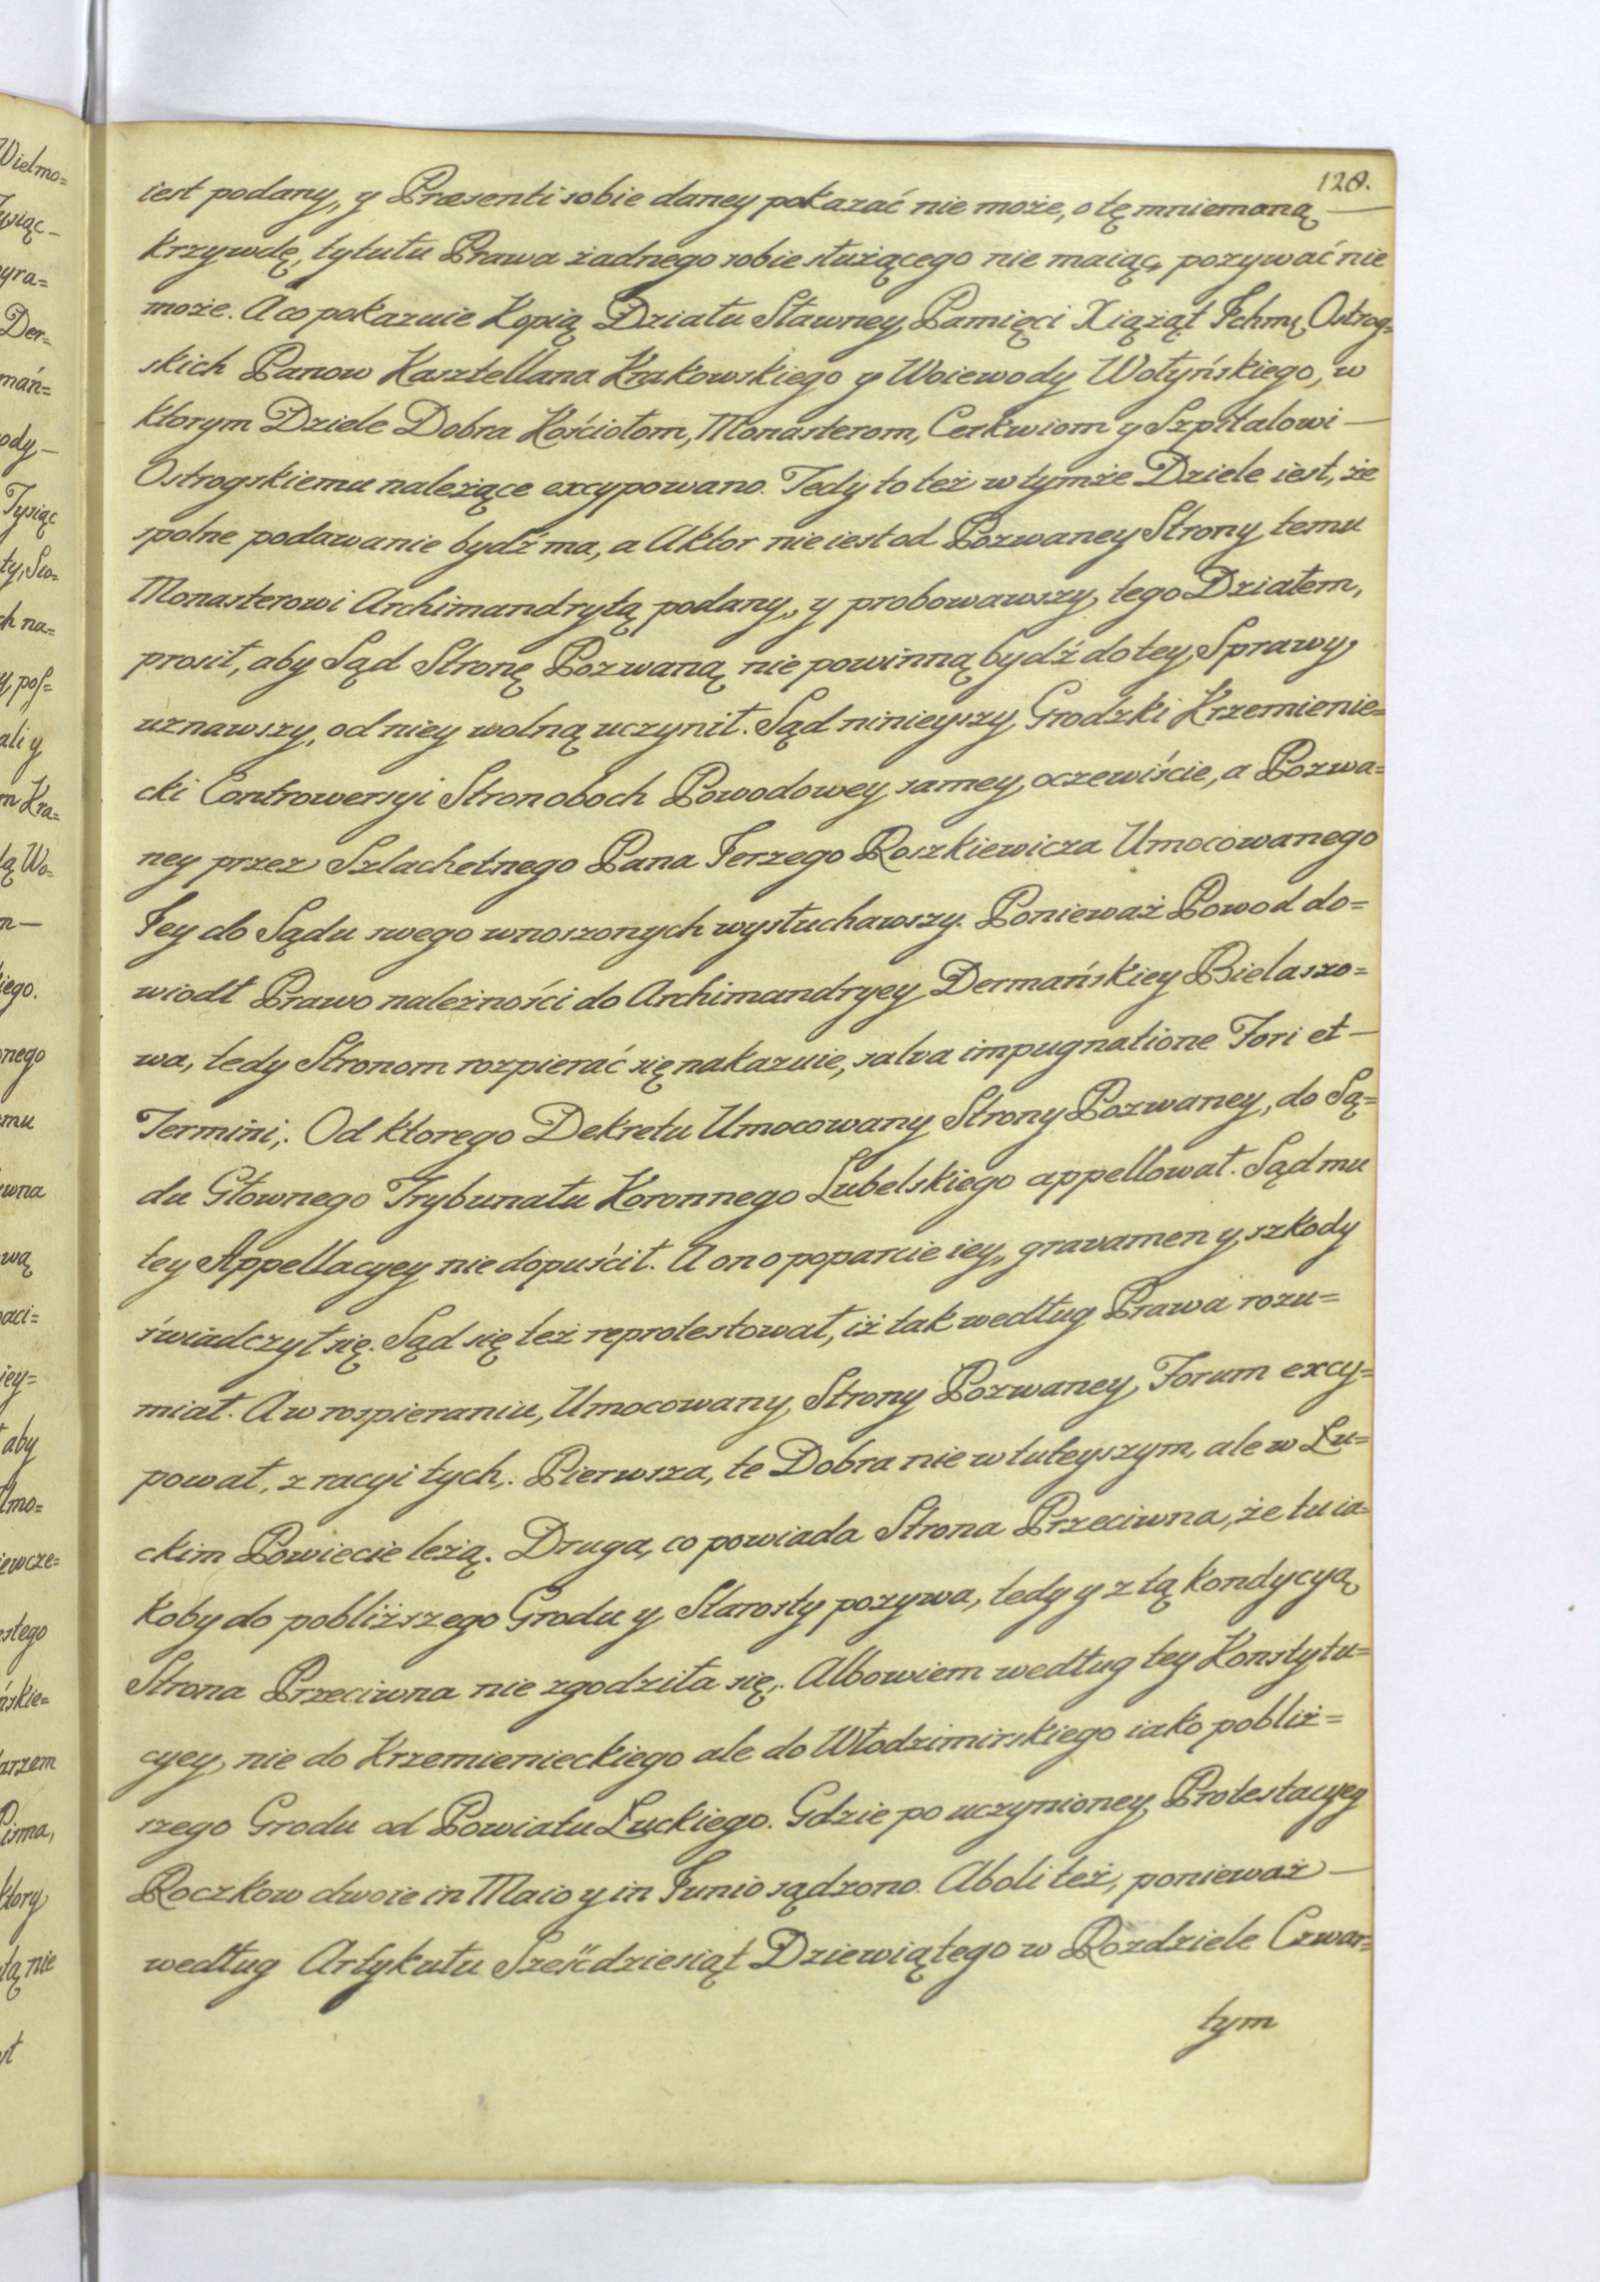 128.
iest podany, y Præsenti sobie daney pokazać nie może, o tę mniemaną —
krzywdę, tytułu Prawa żadnego sobie służącego nie maiąc, pozywać nie
może. A co pokazuie Kopią Działu Sławney Pamięci Xiążąt Ichmć Ostrog=
skich Panow Kasztellana Krakowskiego y Woiewody Wołyńskiego, w
ktorym Dziele Dobra Kościołom, Monasterom, Cerkwiom y Szpitalowi —
Ostrogskiemu należące excypowano. Tedy to też w tymże Dziele iest, że
spolne podawanie bydź ma, a Aktor nie iest od Pozwaney Strony temu
Monasterowi Archimandrytą podany, y probowawszy tego Działem,
prosił, aby Sąd Stronę Pozwaną, nie powinną bydź do tey Sprawy
uznawszy, od niey wolną uczynił. Sąd ninieyszy Grodzki Krzemienie=
cki Controwersyi Stron oboch Powodowey samey oczewiście, a Pozwa=
ney przez Szlachetnego Pana Jerzego Roszkiewicza Umocowanego
Jey do Sądu swego wnoszonych wysłuchawszy. Ponieważ Powod do=
wiodł Prawo należności do Archimandryey Dermańskiey Bielaszo=
wa, tedy Stronom rozpierać się nakazuie, salva impugnatione Fori et —
Termini,. Od ktorego Dekretu Umocowany Strony Pozwaney, do Są=
du Głownego Trybunału Koronnego Lubelskiego appellował. Sąd mu
tey Appellacyey nie dopuścił. A on o poparcie iey, gravamen y szkody
świadczył się. Sąd się też reprotestował, iż tak według Prawa rozu=
miał. A w rospieraniu, Umocowany Strony Pozwaney Forum excy=
pował, z racyi tych,. Pierwsza, te Dobra nie w tuteyszym, ale w Łu=
ckim Powiecie leżą. Druga, co powiada Strona Przeciwna, że tu ia=
koby do pobliższego Grodu y Starosty pozywa, tedy y z tą kondycyą
Strona Przeciwna nie zgodziła się,. Albowiem według tey Konstytu=
cyey, nie do Krzemienieckiego ale do Włodzimirskiego iako pobliż=
szego Grodu od Powiatu Łuckiego. Gdzie po uczynioney Protestacyey
Roczkow dwoie in Maio y in Junio sądzono. Aboli też, ponieważ —
według Artykułu Sześćdziesiąt Dziewiątego w Rozdziele Czwar=
tym